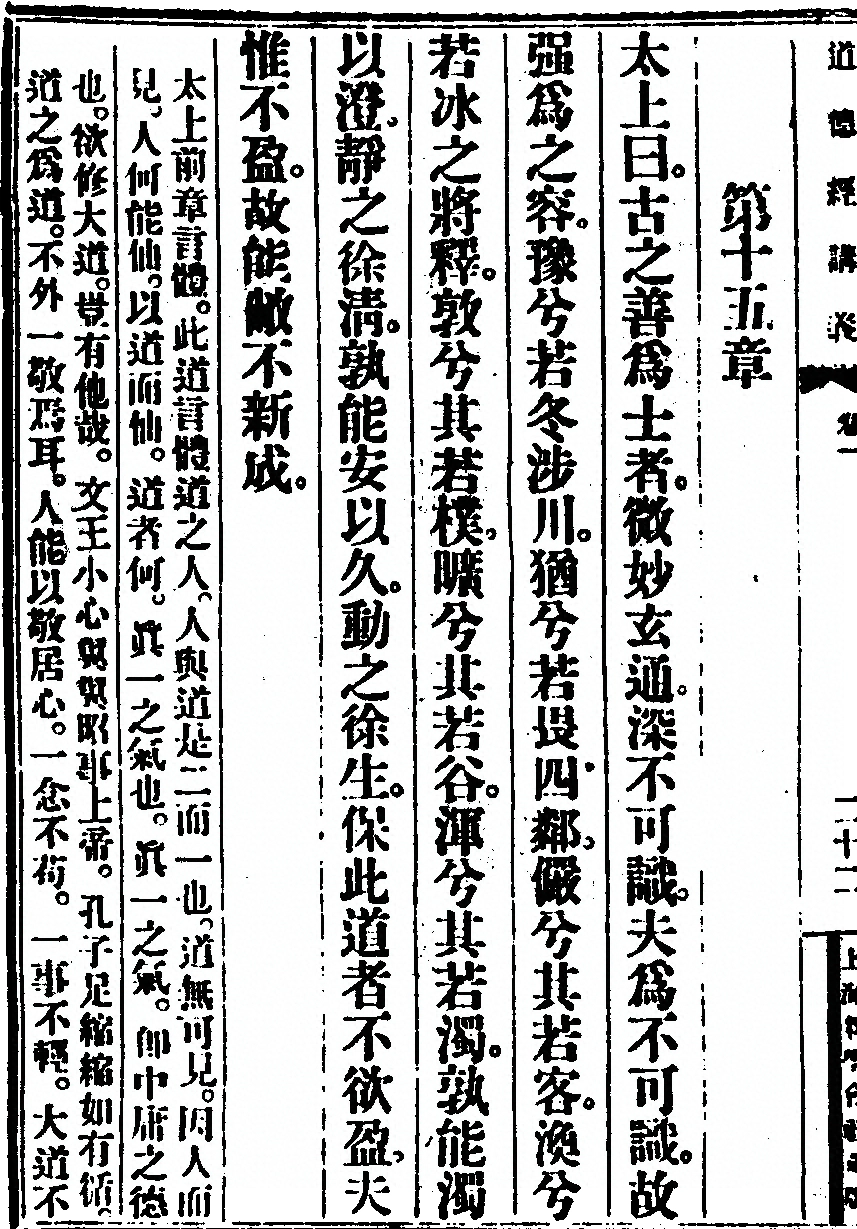 道德經講義 卷一 二十二
第十五章
太上曰。古之善爲士者。微妙玄通。深不可識。夫爲不可識。故
强爲之容。豫兮若冬涉川。猶兮若畏四鄰、儼兮其若客。渙兮
若冰之將釋。敦兮其若樸、曠兮其若谷。渾兮其若濁。孰能濁
以澄、靜之徐淸。孰能安以久。動之徐生。保此道者不欲盈、夫
惟不盈。故能敝不新成。
太上前章言體。此道言體道之人、人與道是二而一也、道無可見。因人而
見、人何能仙。以道而仙。道者何。眞一之氣也。眞一之氣。卽中庸之德
也。欲修大道。豈有他哉。文王小心翼翼昭事上帝。孔子足縮縮如有循。
道之爲道。不外一敬焉耳。人能以敬居心。一念不苟。一事不輕。大道不